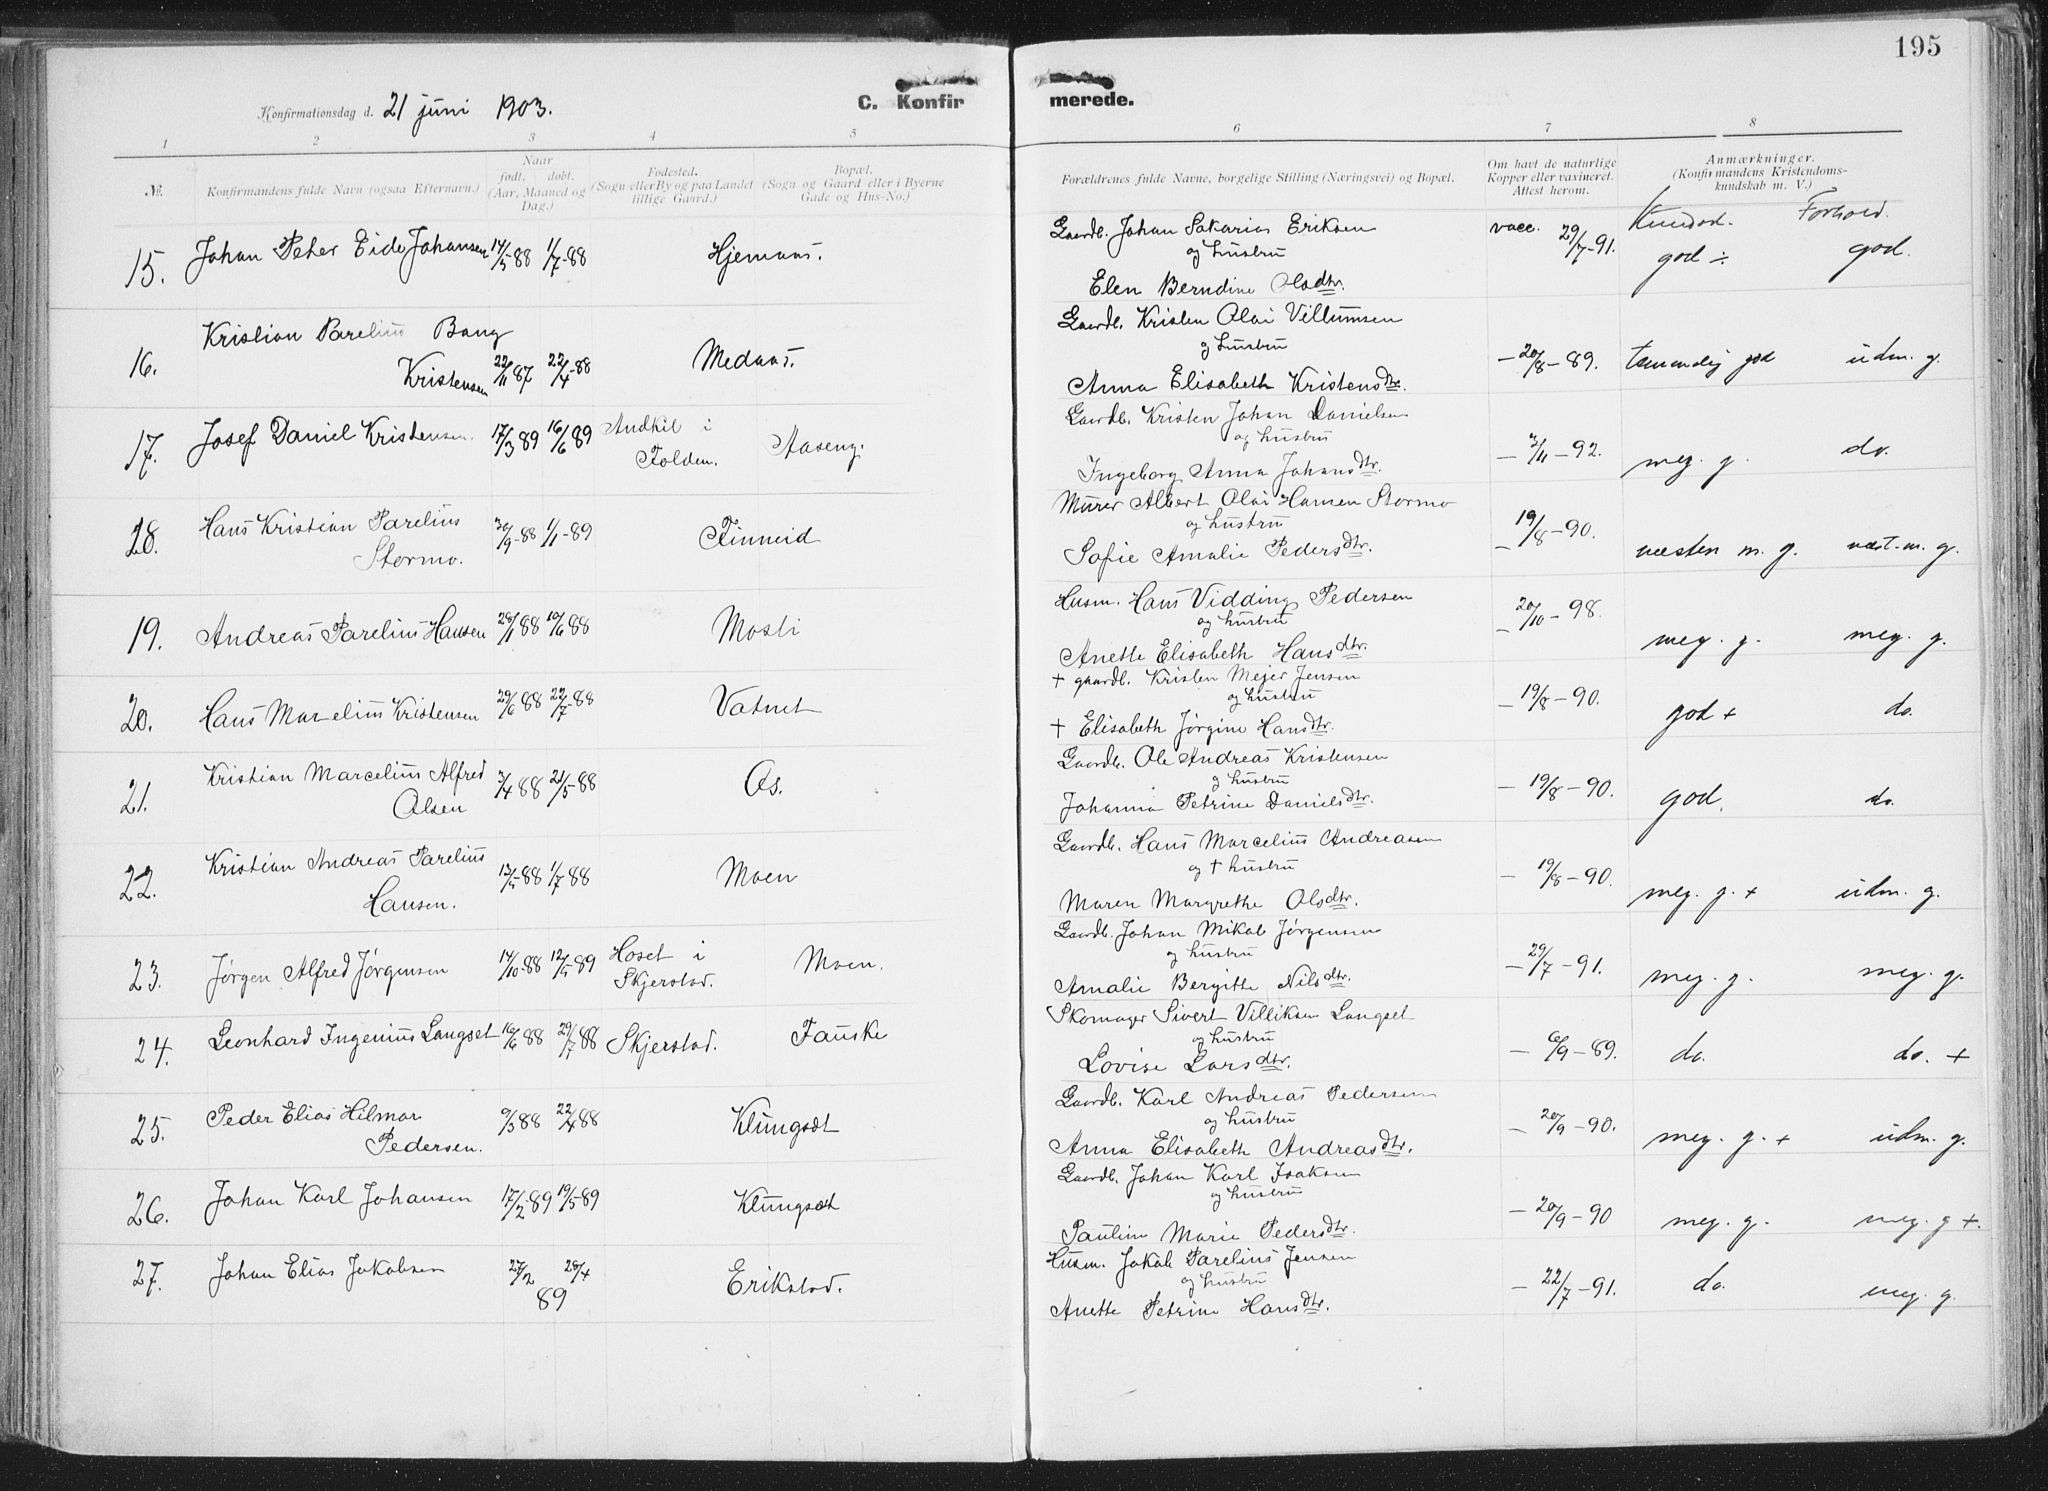 195
C. Konfirmerede.
Konfirmationsdag d. 21 juni 1903.
1 2 3 4 5 6 7 8
№.
Konfirmandens fulde Navn (ogsaa Efternavn.)
Naar
født. døbt.
(Aar, Maaned og Dag.)
Fødested.
(Sogn eller By og paa Landet tillige Gaard.)
Bopæl.
(Sogn og Gaard eller i Byerne Gade og Hus-No.)
Forældrenes fulde Navne, borgelige Stilling (Næringsvei) og Bopæl.
Om havt de naturlige Kopper eller vaxineret. Attest herom.
Anmærkninger.
(Konfirmandens Kristendomskundskab m. V.)
Kundsk. Forhold.
15. Johan Peter Eide Johansen 14/5 88 1/7-88 Hjemaas.
Gaardb. Johan Sakarias Eriksen
og hustru
Elen Berndine Olsdtr.
vacc. 29/7-91. god ÷ god.
16. Kristian Parelius Bang
Kristensen 22/11 87 22/4-88 Medaas.
Gaardb. Kristen Olai Villumsen
og hustru
Anna Elisabeth Kristensdtr.
— 20/8-89. temmelig god udm. g.
17. Josef Daniel Kristensen. 17/3 89 16/6 89 Andkil i
Folden. Aaseng.
Gaardb. Kristen Johan Danielsen
og hustru
Ingeborg Anna Johansdtr.
— 3/11-92. meg. g. do.
18. Hans Kristian Parelius
Stormo. 30/9-88 1/1-89 Finneid
Murer Albert Olai Hansen Stormo
og hustru
Sofie Amalie Pedersdtr.
— 19/8-90. næsten m. g. næst. m. g.
19. Andreas Parelius Hansen 28/1 88 10/6 88 Mosti
Husm. Hans Vidding Pedersen
og hustru
Anette Elisabeth Hansdtr.
— 20/10-98. meg. g. meg. g.
20. Hans Marelius Kristensen 29/6 88 22/7-88 Vatnet
+ gaardb. Kristen Mejer Jensen
og hustru
+ Elisabeth Jørgine Hansdtr.
— 19/8-90. god + do.
21. Kristian Marcelius Alfred
Olsen 3/4 88 21/5-88 Os.
Gaardb. Ole Andreas Kristensen
og hustru
Johanna Petrine Danielsdtr.
— 19/8-90. god. do.
22. Kristian Andreas Parelius
Hansen. 12/5-88 1/7-88 Moen
Gaardb. Hans Marcelius Andreasen
og + hustru
Maren Margrethe Olsdtr.
— 19/8-90. meg. g. + udm. g.
23. Jørgen Alfred Jørgensen 14/10-88 12/5-89 Hoset i
Skjerstad. Moen.
Gaardb. Johan Mikal Jørgensen
og hustru
Amalie Bergitte Nilsdtr.
— 29/7-91. meg. g. meg. g.
24. Leonhard Ingenius Langset 16/6 88 29/7-88 Skjerstad. Fauske
Skomager Sivert Villiksen Langset
og hustru
Lovise Larsdtr.
— 6/9-89. do. do. +
25. Peder Elias Hilmar
Pedersen. 9/3 88 22/4 88 Klungsæt
Gaardb. Karl Andreas Pedersen
og hustru
Anna Elisabeth Andreasdtr.
— 20/9-90. meg. g. + udm. g.
26. Johan Karl Johansen 17/2-89 19/5-89 Klungsæt
Gaardb. Johan Karl Isaksen
og hustru
Pauline Marie Pedersdtr.
— 20/9-90 meg. g. meg. g +.
27. Johan Elias Jakobsen 27/2 28/4
89 Erikstad.
Husm. Jakob Parelius Jensen
og hustru
Anette Petrine Hansdtr.
— 22/7-91. do. meg. g.